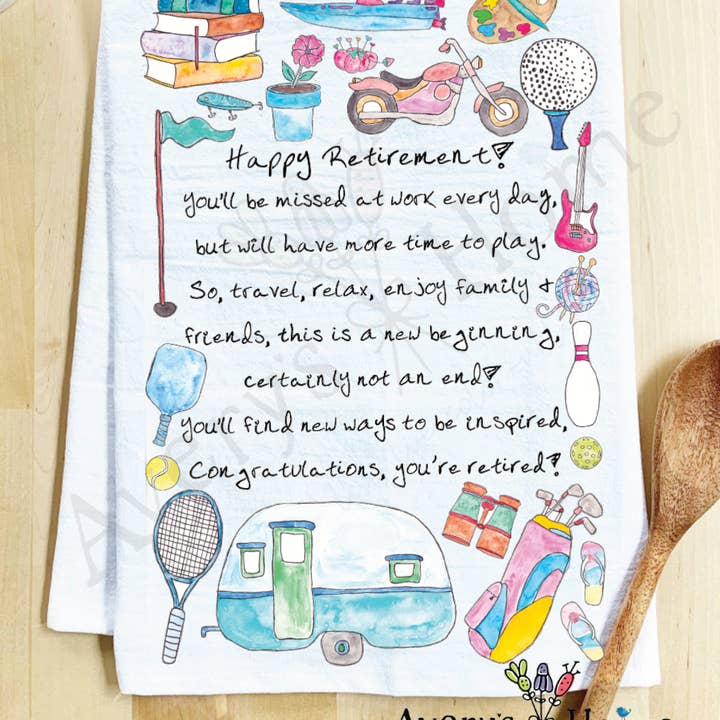 Happy Retirement!
You'll be missed at work every day,
but will have more time to play.
So, travel, relax, enjoy family &
friends, this is a new beginning,
certainly not an end!
You'll find new ways to be inspired,
Congratulations, you're retired!
Avery's at Home